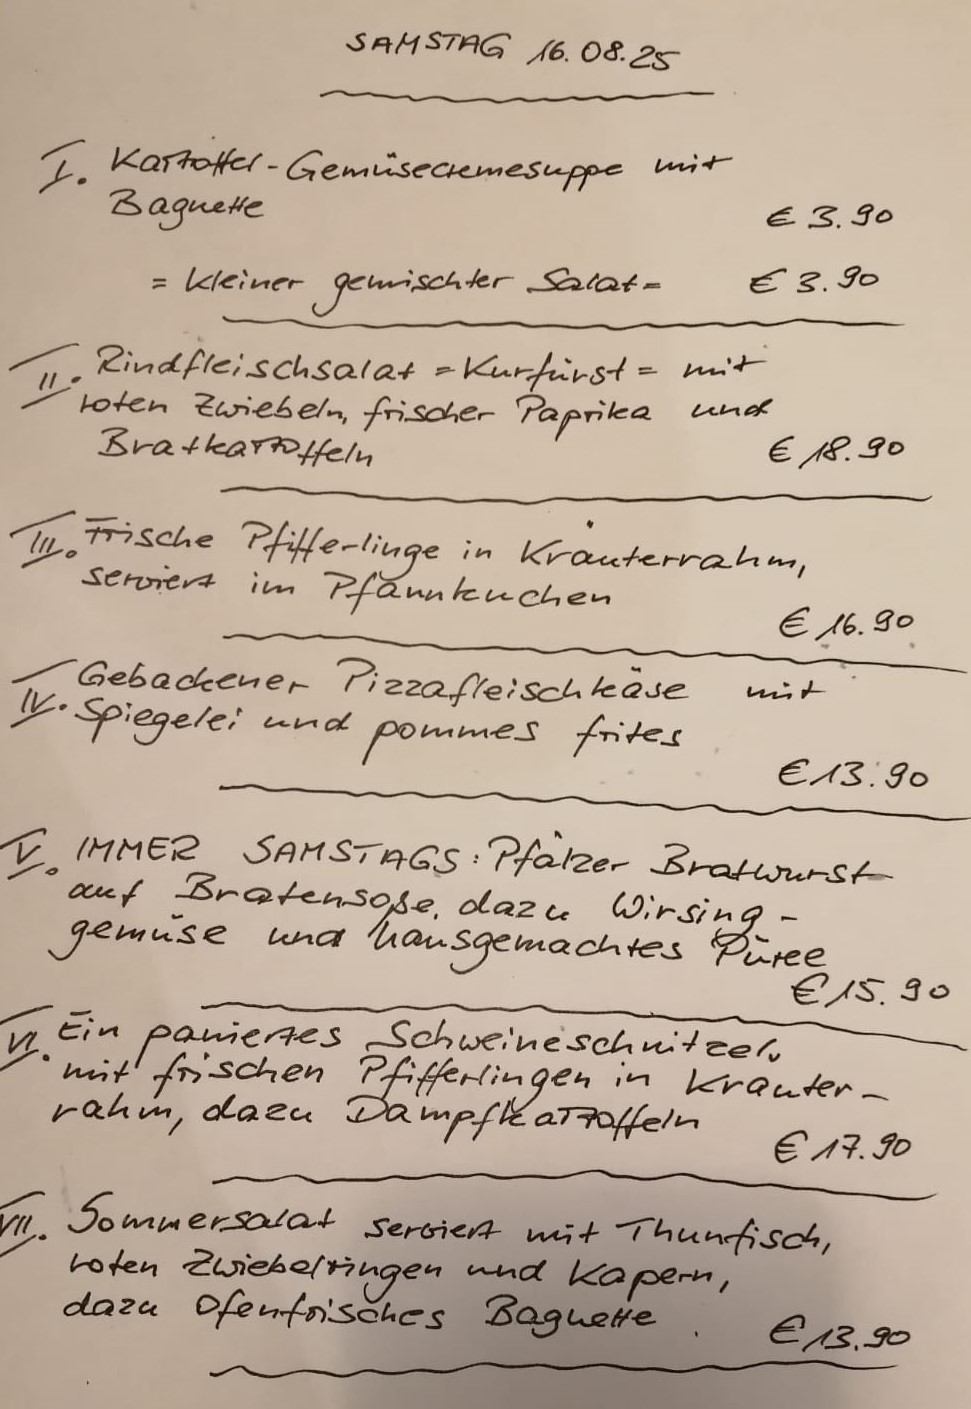 SAMSTAG 16.08.25
I. Kartoffel-Gemüsecremesuppe mit
Baguette € 3.90
= kleiner gemischter Salat = € 3.90
II. Rindfleischsalat = Kurfürst = mit
roten Zwiebeln, frischer Paprika und
Bratkartoffeln € 18.90
III. Frische Pfifferlinge in Kräuterrahm,
serviert im Pfannkuchen
€ 16.90
IV. Gebackener Pizzafleischkäse mit
Spiegelei und pommes frites
€ 13.90
V. IMMER SAMSTAGS: Pfälzer Bratwurst
auf Bratensoße, dazu Wirsing-
gemüse und hausgemachtes Püree
€ 15.90
VI. Ein paniertes Schweineschnitzel,
mit frischen Pfifferlingen in Kräuter-
rahm, dazu Dampfkartoffeln
€ 17.90
VII. Sommersalat serviert mit Thunfisch,
roten Zwiebelringen und Kapern,
dazu Ofenfrisches Baguette € 13.90